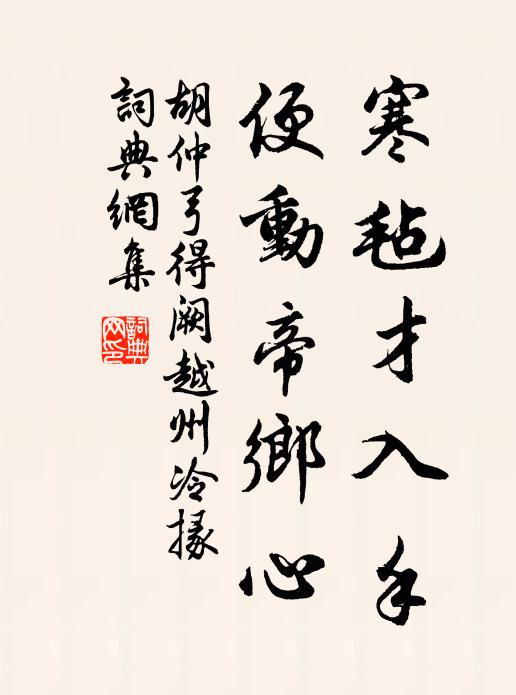 寒毡才入手
便動帝鄉心
胡仲弓得阙越州冷掾
詞典網集
詞典網印